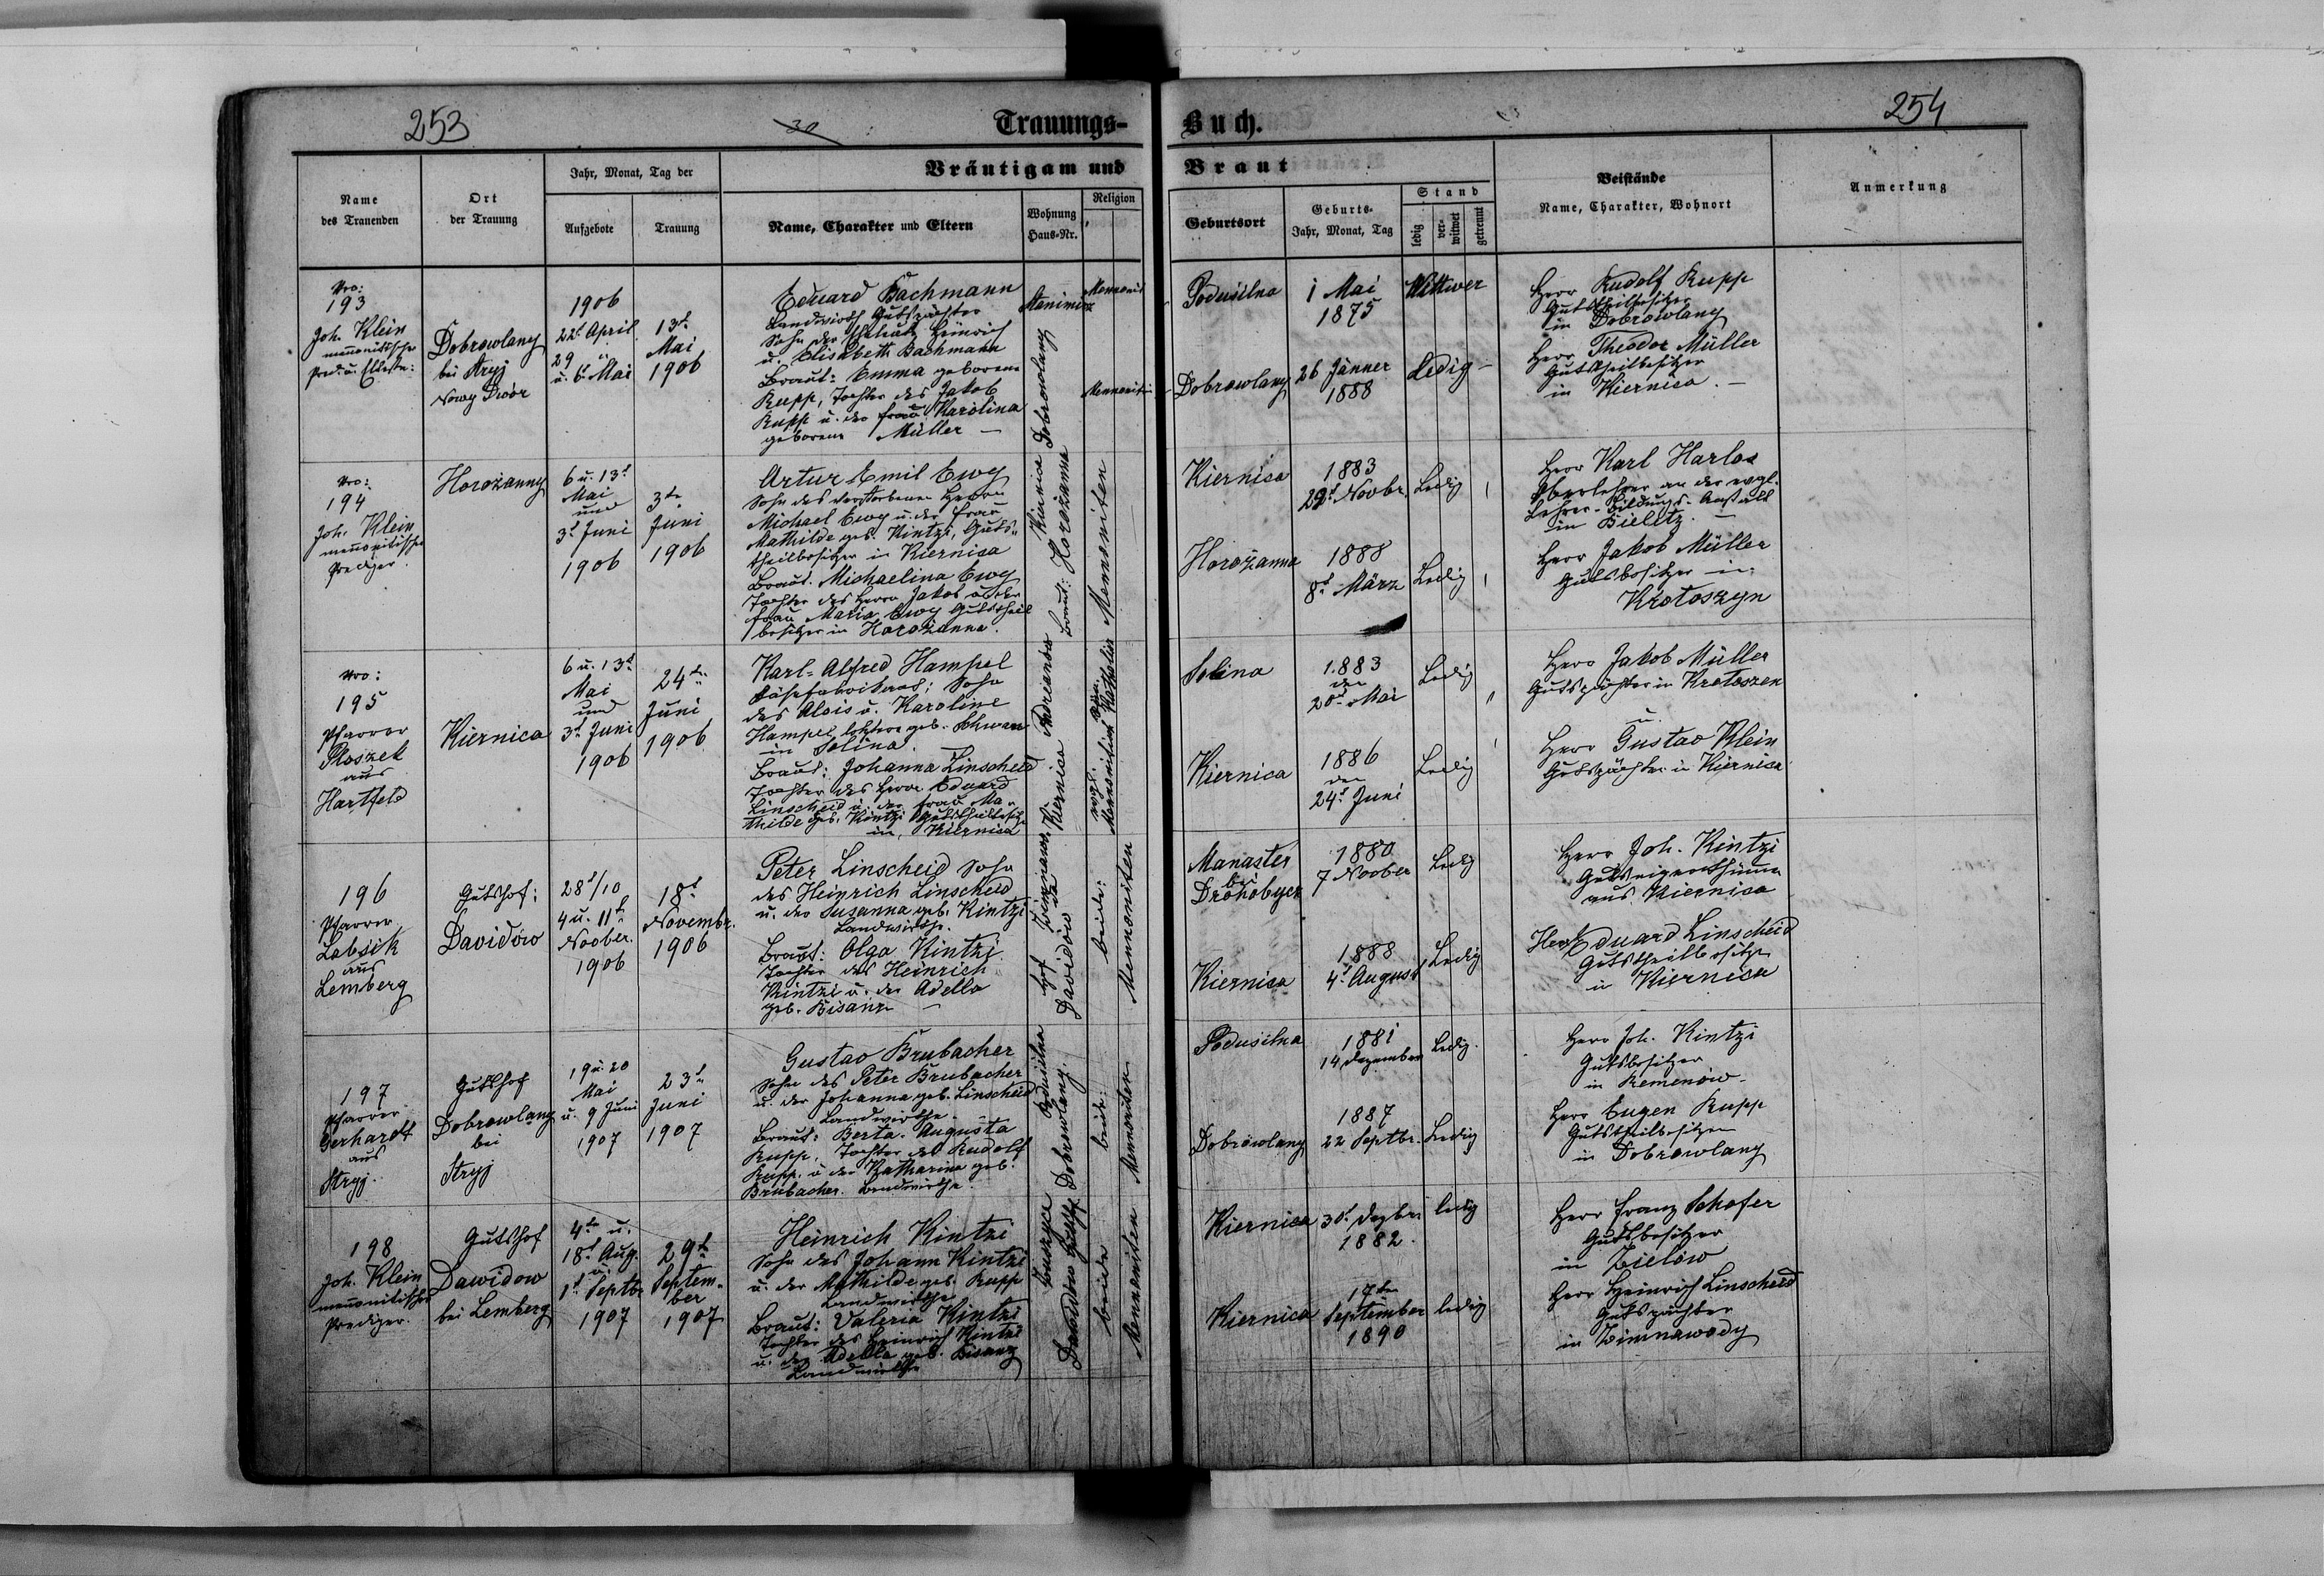 253
30
Trauungs-
Buch.
254
Bräutigam und
Braut
Name
des Trauenden
Ort
der Trauung
Jahr, Monat, Tag der
Aufgebote
Trauung
Name, Charakter und Eltern
Wohnung
Haus-Nr.
Religion
Geburtsort
Geburts-
Jahr, Monat, Tag
Stand
ledig
ver-
witwet
getrennt
Beistände
Name, Charakter, Wohnort
Anmerkung
Nro:
193
Joh. Klein
mennonitischer
Pred. u. Elteste:
Dobrowlany
bei Stryj
Nowy Dwór
1906
22t April
29
u. 6t Mai
13t
Mai
1906
Eduard Bachmann
Landwirth Gutspächter
Sohn der Eheleute Heinrich
u. Elisabeth Bachmann
Braut: Emma geborene
Rupp, Tochter des Jakob
Rupp u. der Frau Karolina
geborene Müller —
Dobrowlany
Mennonit
Mennonitin
Podusilna
1 Mai
1875
Wittwer
Dobrowlany
26 Jänner
1888
Ledig —
Herr Rudolf Rupp
Gutstheilbesitzer
in Dobrowlany
Herr Theodor Müller
Gutstheilbesitzer
in Kiernica. —
Nro:
194
Joh. Klein
mennonitischer
Prediger.
Horożanny
6 u. 13t
Mai
und
3t Juni
1906
3te
Juni
1906
Artur Emil Ewy
Sohn des verstorbenen Herrn
Michael Ewy u. der Frau
Mathilde geb. Kintzi, Guts-
theilbesitzer in Kiernica
Braut. Michaelina Ewy
Tochter des Herrn Jakob u. der
Frau Maria Ewy Gutstheil
besitzer in Horożanna.
Kiernica
Braut: Horożanna
Mennoniten
Kiernica
1883
29t Novbr.
Ledig
Horożanna
1888
8t März
Ledig
Herr Karl Harlos
Oberlehrer an der evgl.
Lehrer-Bildungs-Anstalt
in Bielitz. —
Herr Jakob Müller
Gutsbesitzer in
Krotoszyn
Nro:
195
Pfarrer
Ploszek
aus
Hartfeld
Kiernica
6 u. 13t
Mai
und
3t Juni
1906
24te
Juni
1906
Karl-Alfred Hampel
Sohn
des Alois u. Karoline
Hampel geb. Schwarz
in Solina.
Braut: Johanna Linscheid
Tochter des Herrn Eduard
Linscheid u. der Frau Ma-
thilde geb. Kintzi Gutstheilbesitzer
in Kiernica
Kiernica
evgl.
Mennonitisch
Solina
1883
den
20t Mai
Ledig
Kiernica
1886
den
24t Juni
Ledig
Herr Jakob Müller
Gutspächter in Krotoszen
u.
Herr Gustav Klein
Gutspächter in Kiernica
196
Pfarrer
aus
Lemberg
Gutshof:
Davidów
28t/10
4 u. 11t
Novber.
1906
18t
Novembr.
1906
Peter Linscheid Sohn
des Heinrich Linscheid
u. der Susanna geb. Kintzi
Landwirthe.
Braut: Olga Kintzi
Tochter des Heinrich
Kintzi u. der Adella
geb. Bisanz —
Davidów
beide:
Mennoniten
Manaster
bei
Drohobycz
1880
7 Novber
Ledig
Kiernica
1888
4t August
Ledig
Herr Joh. Kintzi
Gutseigenthümer
aus Kiernica
Herr Eduard Linscheid
Gutstheilbesitzer
in Kiernica
197
Pfarrer
Gerhardt
aus
Stryj.
Gutshof
Dobrowlany
bei
Stryj
19 u. 20
Mai
u. 9 Juni
1907
23t
Juni
1907
Gustav Brubacher
Sohn des Peter Brubacher
u. der Johanna geb. Linscheid
Landwirthe.
Braut: Berta-Augusta
Rupp, Tochter des Rudolf
Rupp u. der Katharina geb.
Brubacher. Landwirthe.
Podusilna
Dobrowlany.
beide:
Mennoniten
Podusilna
1881
14 Dezember
Ledig.
Dobrowlany
1887
22 Septbr.
Ledig
Herr Joh. Kintzi
Gutsbesitzer
in Remenów.
Herr Eugen Rupp
Gutstheilbesitzer
in Dobrowlany
198
Joh. Klein
mennonitischer
Prediger.
Gutshof
Dawidow
bei Lemberg
4te u.
18t Aug.
u.
1t Septbr
1907
29te
Septem-
ber
1907
Heinrich Kintzi
Sohn des Johann Kintzi
u. der Mathilde geb. Rupp
Landwirthe
Braut: Valeria Kintzi
Tochter des Heinrich Kintzi
u. der Adella geb. Bisanz
Landwirthe
Dawidów
beide
Mennoniten
Kiernica
30t Dezbr.
1882.
ledig
Kiernica
17ten
September
1890
ledig
Herr Franz Schafer
Gutsbesitzer
in Zielów
Herr Heinrich Linscheid
Gutspächter
in Zimnawody